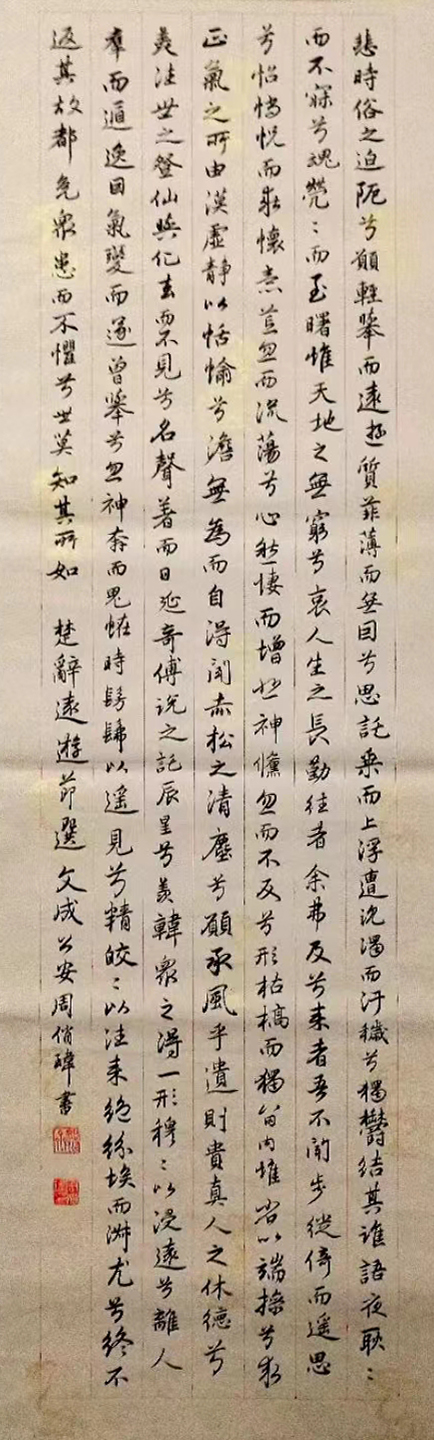 悲時俗之迫阨兮願輕舉而遠逰質菲薄而無因兮思託乗而上浮遭沈濁而汙穢兮獨鬱結其誰語夜耿〻
而不寐兮魂煢〻而至曙惟天地之無窮兮哀人生之長勤往者余弗及兮来者吾不聞步徙倚而遥思
兮怊惝怳而乖懷意荒忽而流蕩兮心愁悽而增悲神儵忽而不反兮形枯槁而獨留内惟省以端操兮求
正氣之所由漠虛静以恬愉兮澹無為而自得聞赤松之清塵兮願承風乎遺則貴真人之休德兮
美往世之登仙與化去而不見兮名聲著而日延奇傅説之託辰星兮羨韓衆之得一形穆〻以浸遠兮離人
羣而遁逸因氣變而遂曾舉兮忽神奔而鬼恠時髣髴以遥見兮精皎〻以往来絶紛埃而淑尤兮終不
返其故都免衆患而不懼兮世莫知其所如 楚辭遠遊節選文成公安周俏瑋書